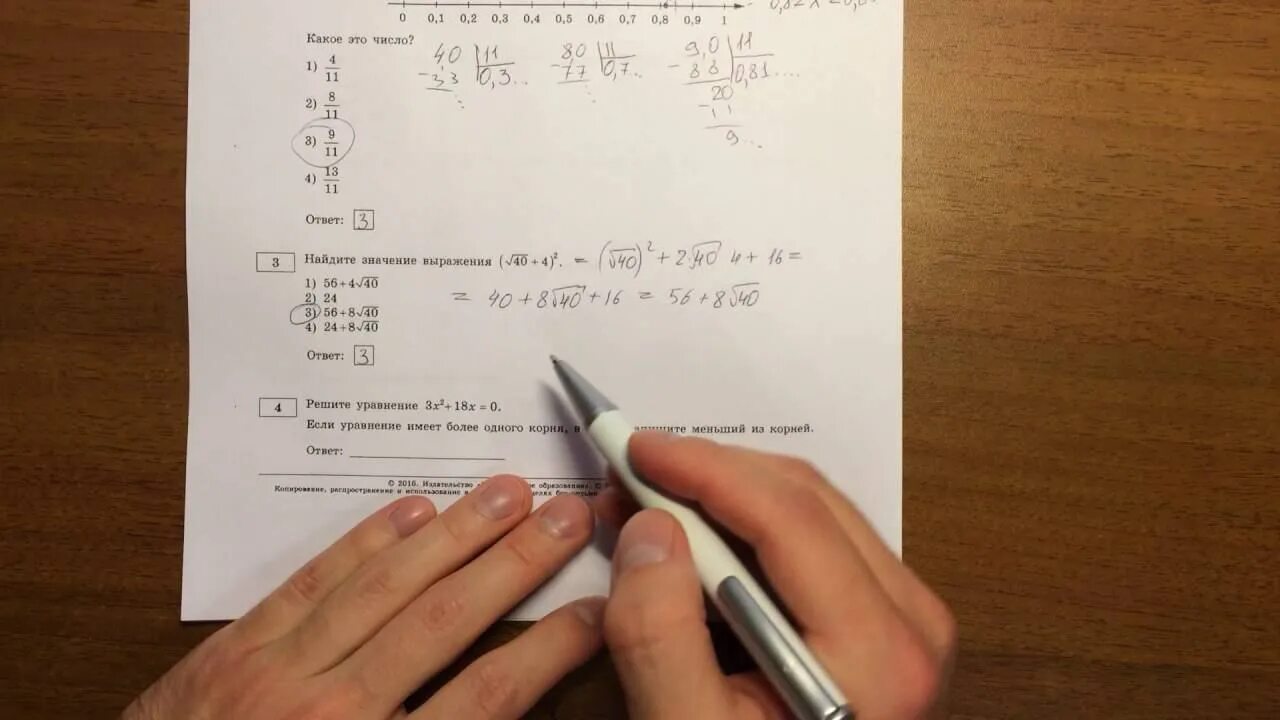 0 0,1 0,2 0,3 0,4 0,5 0,6 0,7 0,8 0,9 1
Какое это число?
1) 4/11
2) 8/11
3) 9/11
4) 13/11
40 11
- 33 0,3...
80 11
- 77 0,7...
9,0 11
- 88 0,81....
20
- 11
9...
Ответ: 3
3 Найдите значение выражения (√40 + 4)². = (√40)² + 2·√40 4 + 16 =
1) 56+4√40
2) 24
3) 56+8√40
4) 24+8√40
= 40 + 8√40 + 16 = 56 + 8√40
Ответ: 3
4 Решите уравнение 3x²+18x = 0.
Если уравнение имеет более одного корня, в меньший из корней.
Ответ:
© 2016. Издательство
Копирование, распространение и использование в